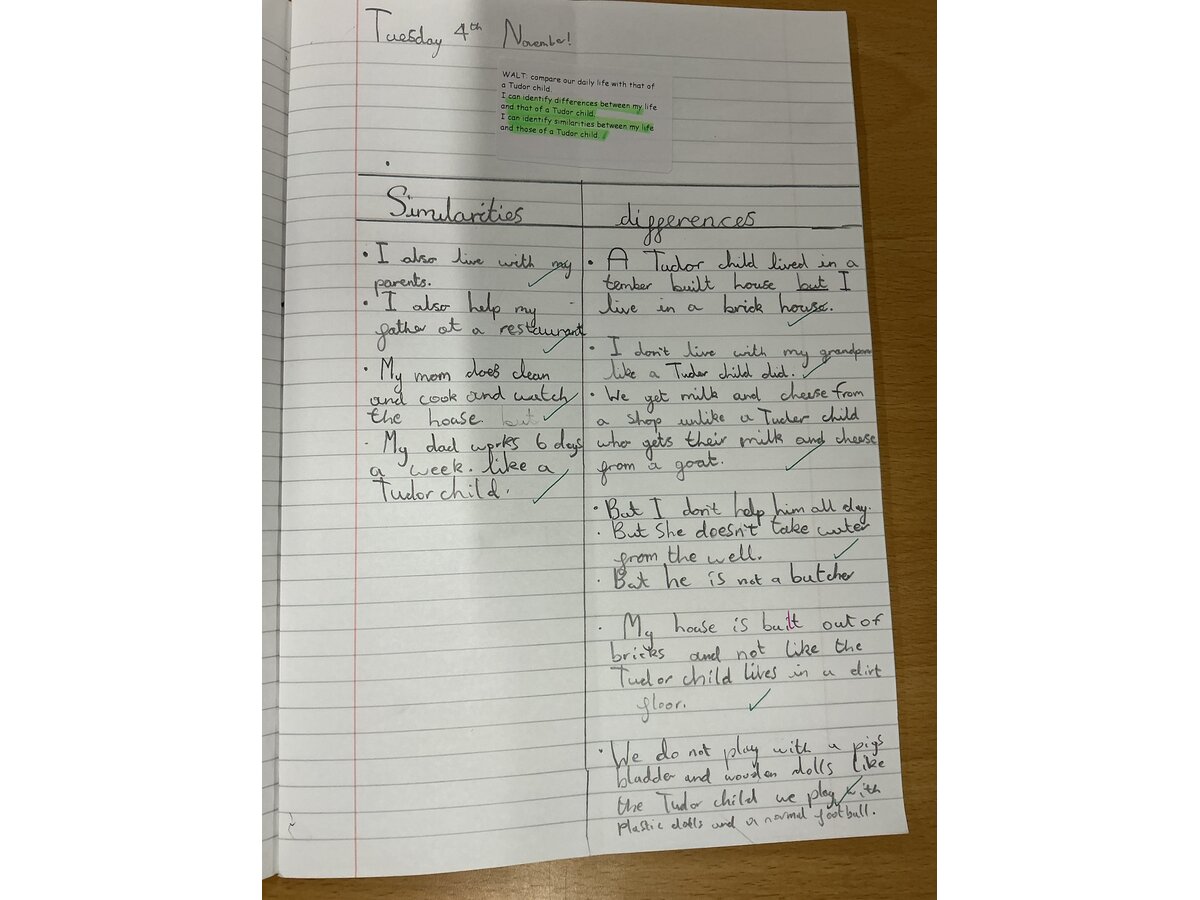 Tuesday 4th November!
WALT: compare our daily life with that of
a Tudor child.
I can identify differences between my life
and that of a Tudor child.
I can identify similarities between my life
and those of a Tudor child.
Similarities
• I also live with my
parents.
• I also help my
father at a restaurant
• My mom does clean
and cook and watch
the house but
• My dad works 6 days
a week. like a
Tudor child.
differences
• A Tudor child lived in a
tember built house but I
live in a brick house.
• I don't live with my grandparen
like a Tudor child did.
• We get milk and cheese from
a shop unlike a Tudor child
who gets their milk and cheese
from a goat.
• But I don't help him all day.
• But she doesn't take water
from the well.
• But he is not a butcher
• My house is built out of
bricks and not like the
Tudor child lives in a dirt
floor.
• We do not play with a pigs
bladder and wooden dolls like
the Tudor child we play with
plastic dolls and a normal football.